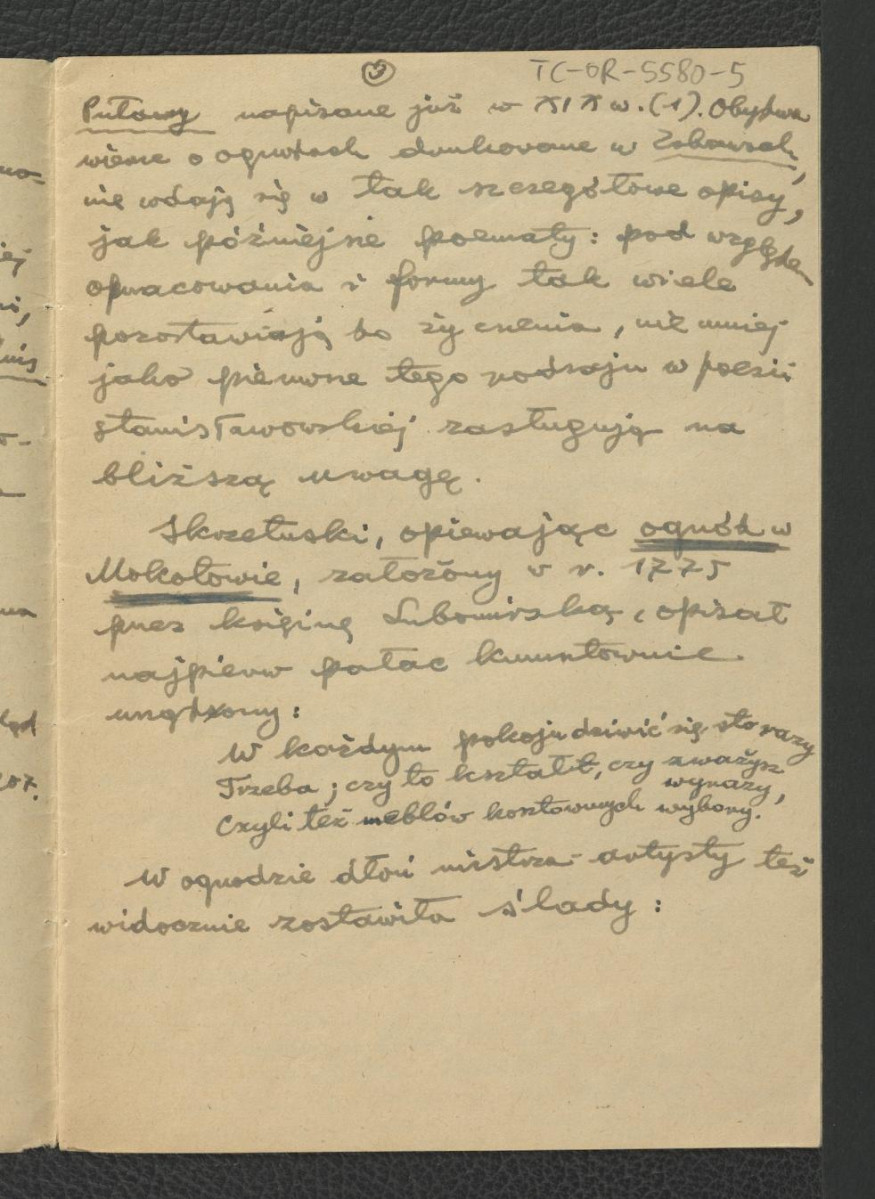 ③ TC-OR-5580-5
Puławy napisane już w XIX w. (1). Obydwa
wiersze o ogrodach drukowane w Zabawach,
nie wdają się w tak szczegółowe opisy,
jak późniejsze poematy: pod względem
opracowania i formy tak wiele
pozostawiają do życzenia, nie mniej
jako pierwsze tego rodzaju w poezji
stanisławowskiej zasługują na
bliższą uwagę.
Skrzetuski, opiewając ogród w
Mokotowie, założony w r. 1775
przez księżnę Lubomirską, opisał
najpierw pałac kunsztownie
urządzony:
W każdym pokoju dziwić się sto razy
Trzeba; czy to kształt, czy zważysz
wyrazy,
Czyli też meblów kosztownych wybory.
W ogrodzie dłoń mistrza-artysty też
widocznie zostawiła ślady: